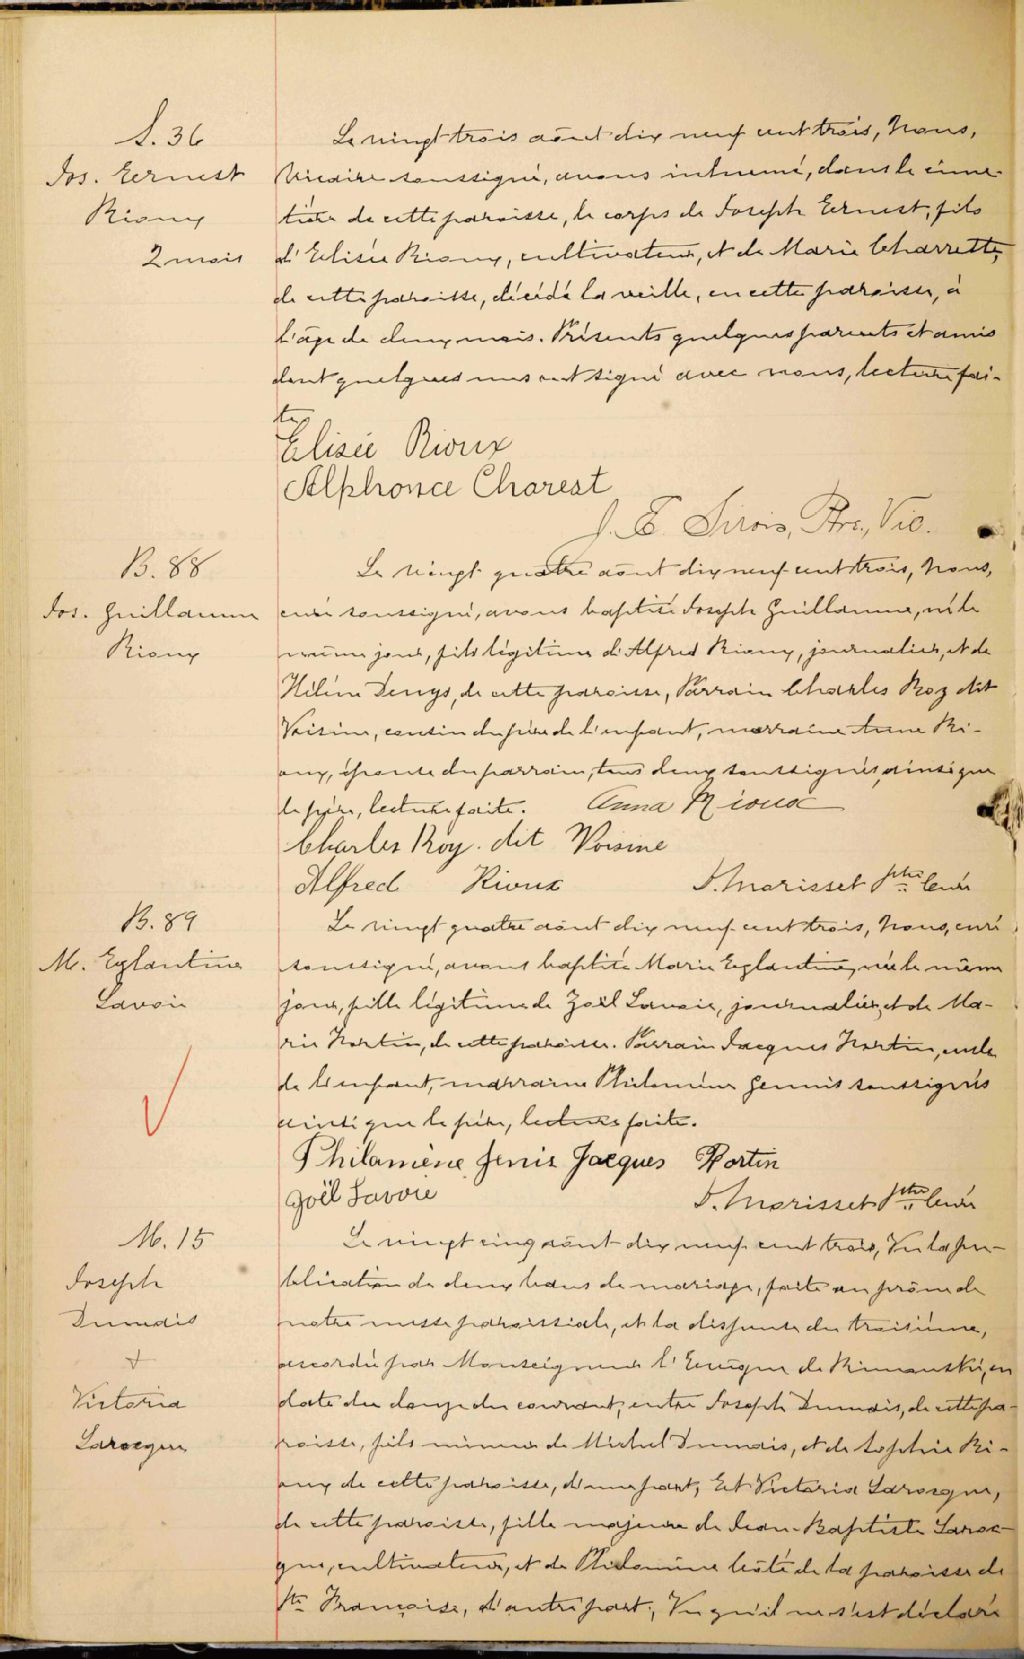 S. 36
Jos. Ernest
Rioux
2 mois
Le vingt trois août dix neuf cent trois, Nous,
Vicaire soussigné, avons inhumé, dans le cime-
tière de cette paroisse, le corps de Joseph Ernest, fils
d'Elisée Rioux, cultivateur, et de Marie Charrette,
de cette paroisse, décédé la veille, en cette paroisse, à
l'âge de deux mois. Présents quelques parents et amis
dont quelques uns ont signé avec nous, lecture fai-
te
Elisée Rioux
Alphonce Charest
J. E. Sirois, Ptre, Vic.
B. 88
Jos. Guillaume
Rioux
Le vingt quatre août dix neuf cent trois, Nous,
curé soussigné, avons baptisé Joseph Guillaume, né le
même jour, fils légitime d'Alfred Rioux, journalier, et de
Hélène Denys, de cette paroisse, Parrain Charles Roy dit
Voisine, cousin du père de l'enfant, marraine Anna Ri-
oux, épouse du parrain, tous deux soussignés, ainsi que
le père, lecture faite. Anna Rioux
Charles Roy. dit Voisine
Alfred Rioux D. Morisset ptre Curé
B. 89
M. Eglantine
Lavoie
Le vingt quatre août dix neuf cent trois, Nous, curé
soussigné, avons baptisé Marie Eglantine, née le même
jour, fille légitime de Zoël Lavoie, journalier, et de Ma-
rie Nortin, de cette paroisse. Parrain Jacques Nortin, oncle
de l'enfant, marraine Philomène Jennis soussignés
ainsi que le père, lecture faite.
Philamène Jenis Jacques Nortin
Joël Lavoie D. Morisset ptre Curé
M. 15
Joseph
Dumais
+
Victoria
Larocque
Le vingt cinq août dix neuf cent trois, Vu la pu-
blication de deux bans de mariage, faite au prône de
notre messe paroissiale, et la dispense du troisième,
accordée par Monseigneur l'Evêque de Rimouski, en
date du douze du courant, entre Joseph Dumais, de cette pa-
roisse, fils mineur de Michel Dumais, et de Sophie Ri-
oux de cette paroisse, d'une part, Et Victoria Larocque,
de cette paroisse, fille majeure de Jean-Baptiste Laroc-
que, cultivateur, et de Philomène Côté de la paroisse de
Ste Françoise, d'autre part; Vu qu'il ne s'est déclaré